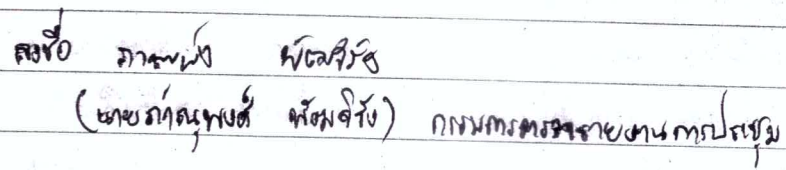 ลงชื่อ ภาณุพงศ์
(นายภาณุพงศ์ พ้อมจิรัง) กรรมการตรวจรายงานการประชุม